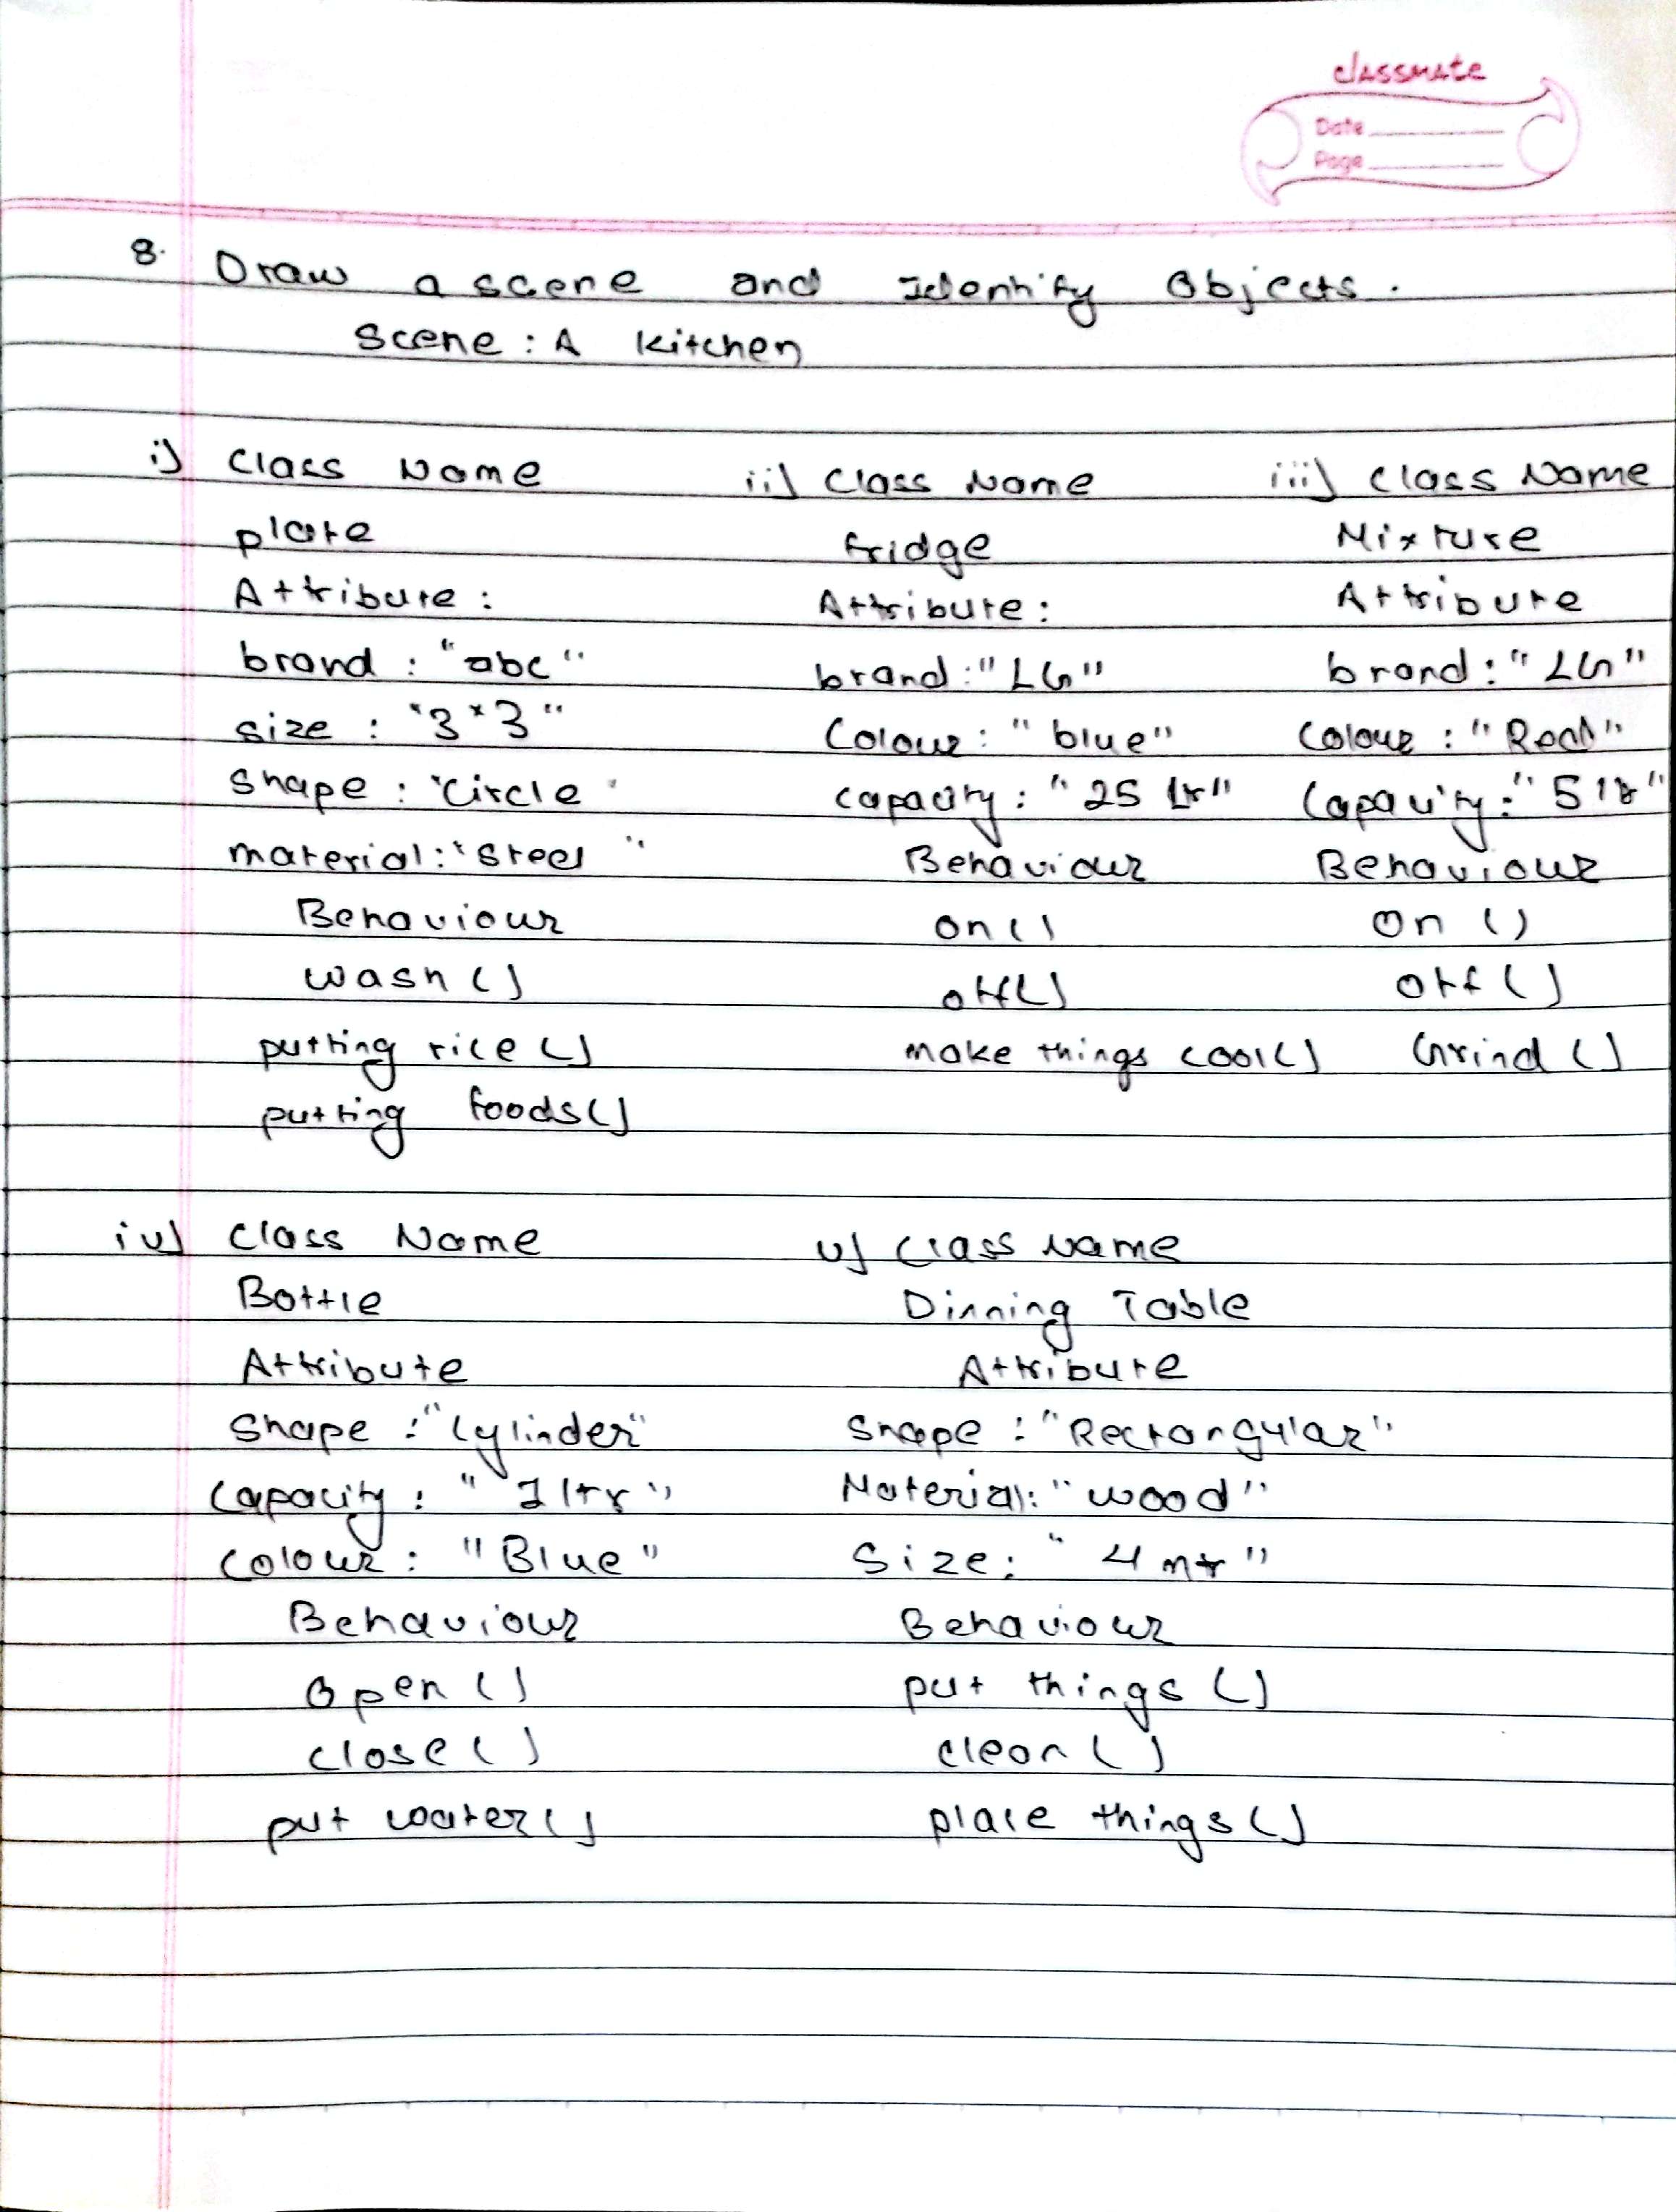 classmate
Date
Page
8. Draw a scene and Identify Objects.
Scene : A kitchen
i) Class Name
plate
Attribute :
brand : "abc"
size : "3*3"
Shape : "Circle"
material : "Steel"
Behaviour
wash ()
putting rice ()
putting foods()
ii) Class Name
fridge
Attribute :
brand : "LG"
Colour : "blue"
capacity : "25 ltr"
Behaviour
on()
off()
make things cool()
iii) Class Name
Mixture
Attribute
brand : "LG"
Colour : "Red"
Capacity : "5 ltr"
Behaviour
on ()
off ()
Grind ()
iv) Class Name
Bottle
Attribute
Shape : "Cylinder"
Capacity : "1 ltr"
Colour : "Blue"
Behaviour
Open ()
Close ()
put water ()
v) Class Name
Dinning Table
Attribute
Shape : "Rectangular"
Material : "wood"
Size : "4 mtr"
Behaviour
put things ()
clean ()
place things ()